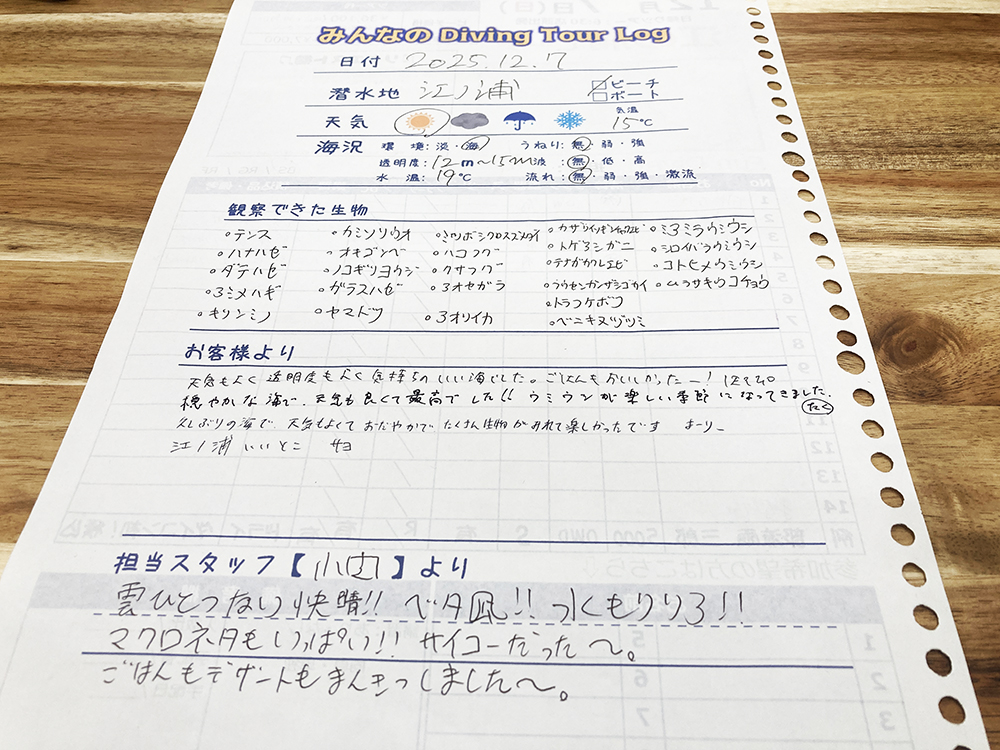 みんなの Diving Tour Log
日付 2025.12.7
潜水地 江ノ浦 ビーチ ボート
天気 気温 15℃
海況 環境:淡・海 うねり:無・弱・強
透明度:12m〜15m 波:無・低・高
水温:19℃ 流れ:無・弱・強・激流
観察できた生物
○テンス ○カミソリウオ ○ミツボシクロスズメダイ ○カザリイソギンチャクエビ ○ミヨミラウミウシ
○ハナハゼ ○オキゴンベ ○ハコフグ ○トゲヨシガニ ○シロイバラウミウシ
○ダテハゼ ○ノコギリヨウジ ○クサフグ ○テナガカクレエビ ○コトヒメウミウシ
○ヨミメハギ ○ガラスハゼ ○ヨオセガラ ○フウセンカンザシゴカイ ○ムラサキウコチョウ
○キリンミノ ○ヤマドリ ○ヨオリイカ ○トラフケボリ
○ベニキヌヅツミ
お客様より
天気もよく透明度もよく気持ちのいい海でした。ごはんもおいしかったー!
穏やかな海で、天気も良くて最高でした!! ウミウシが楽しい季節になってきました。
たく
久しぶりの海で、天気もよくておだやかで たくさん生物がみれて楽しかったです まーりー
江ノ浦 いいとこ サヨ
担当スタッフ【小山】より
雲ひとつない快晴!! ベタ凪!! 水もクリア!!
マクロネタもいっぱい!! サイコーだった〜。
ごはんもデザートもまんきつしました〜。